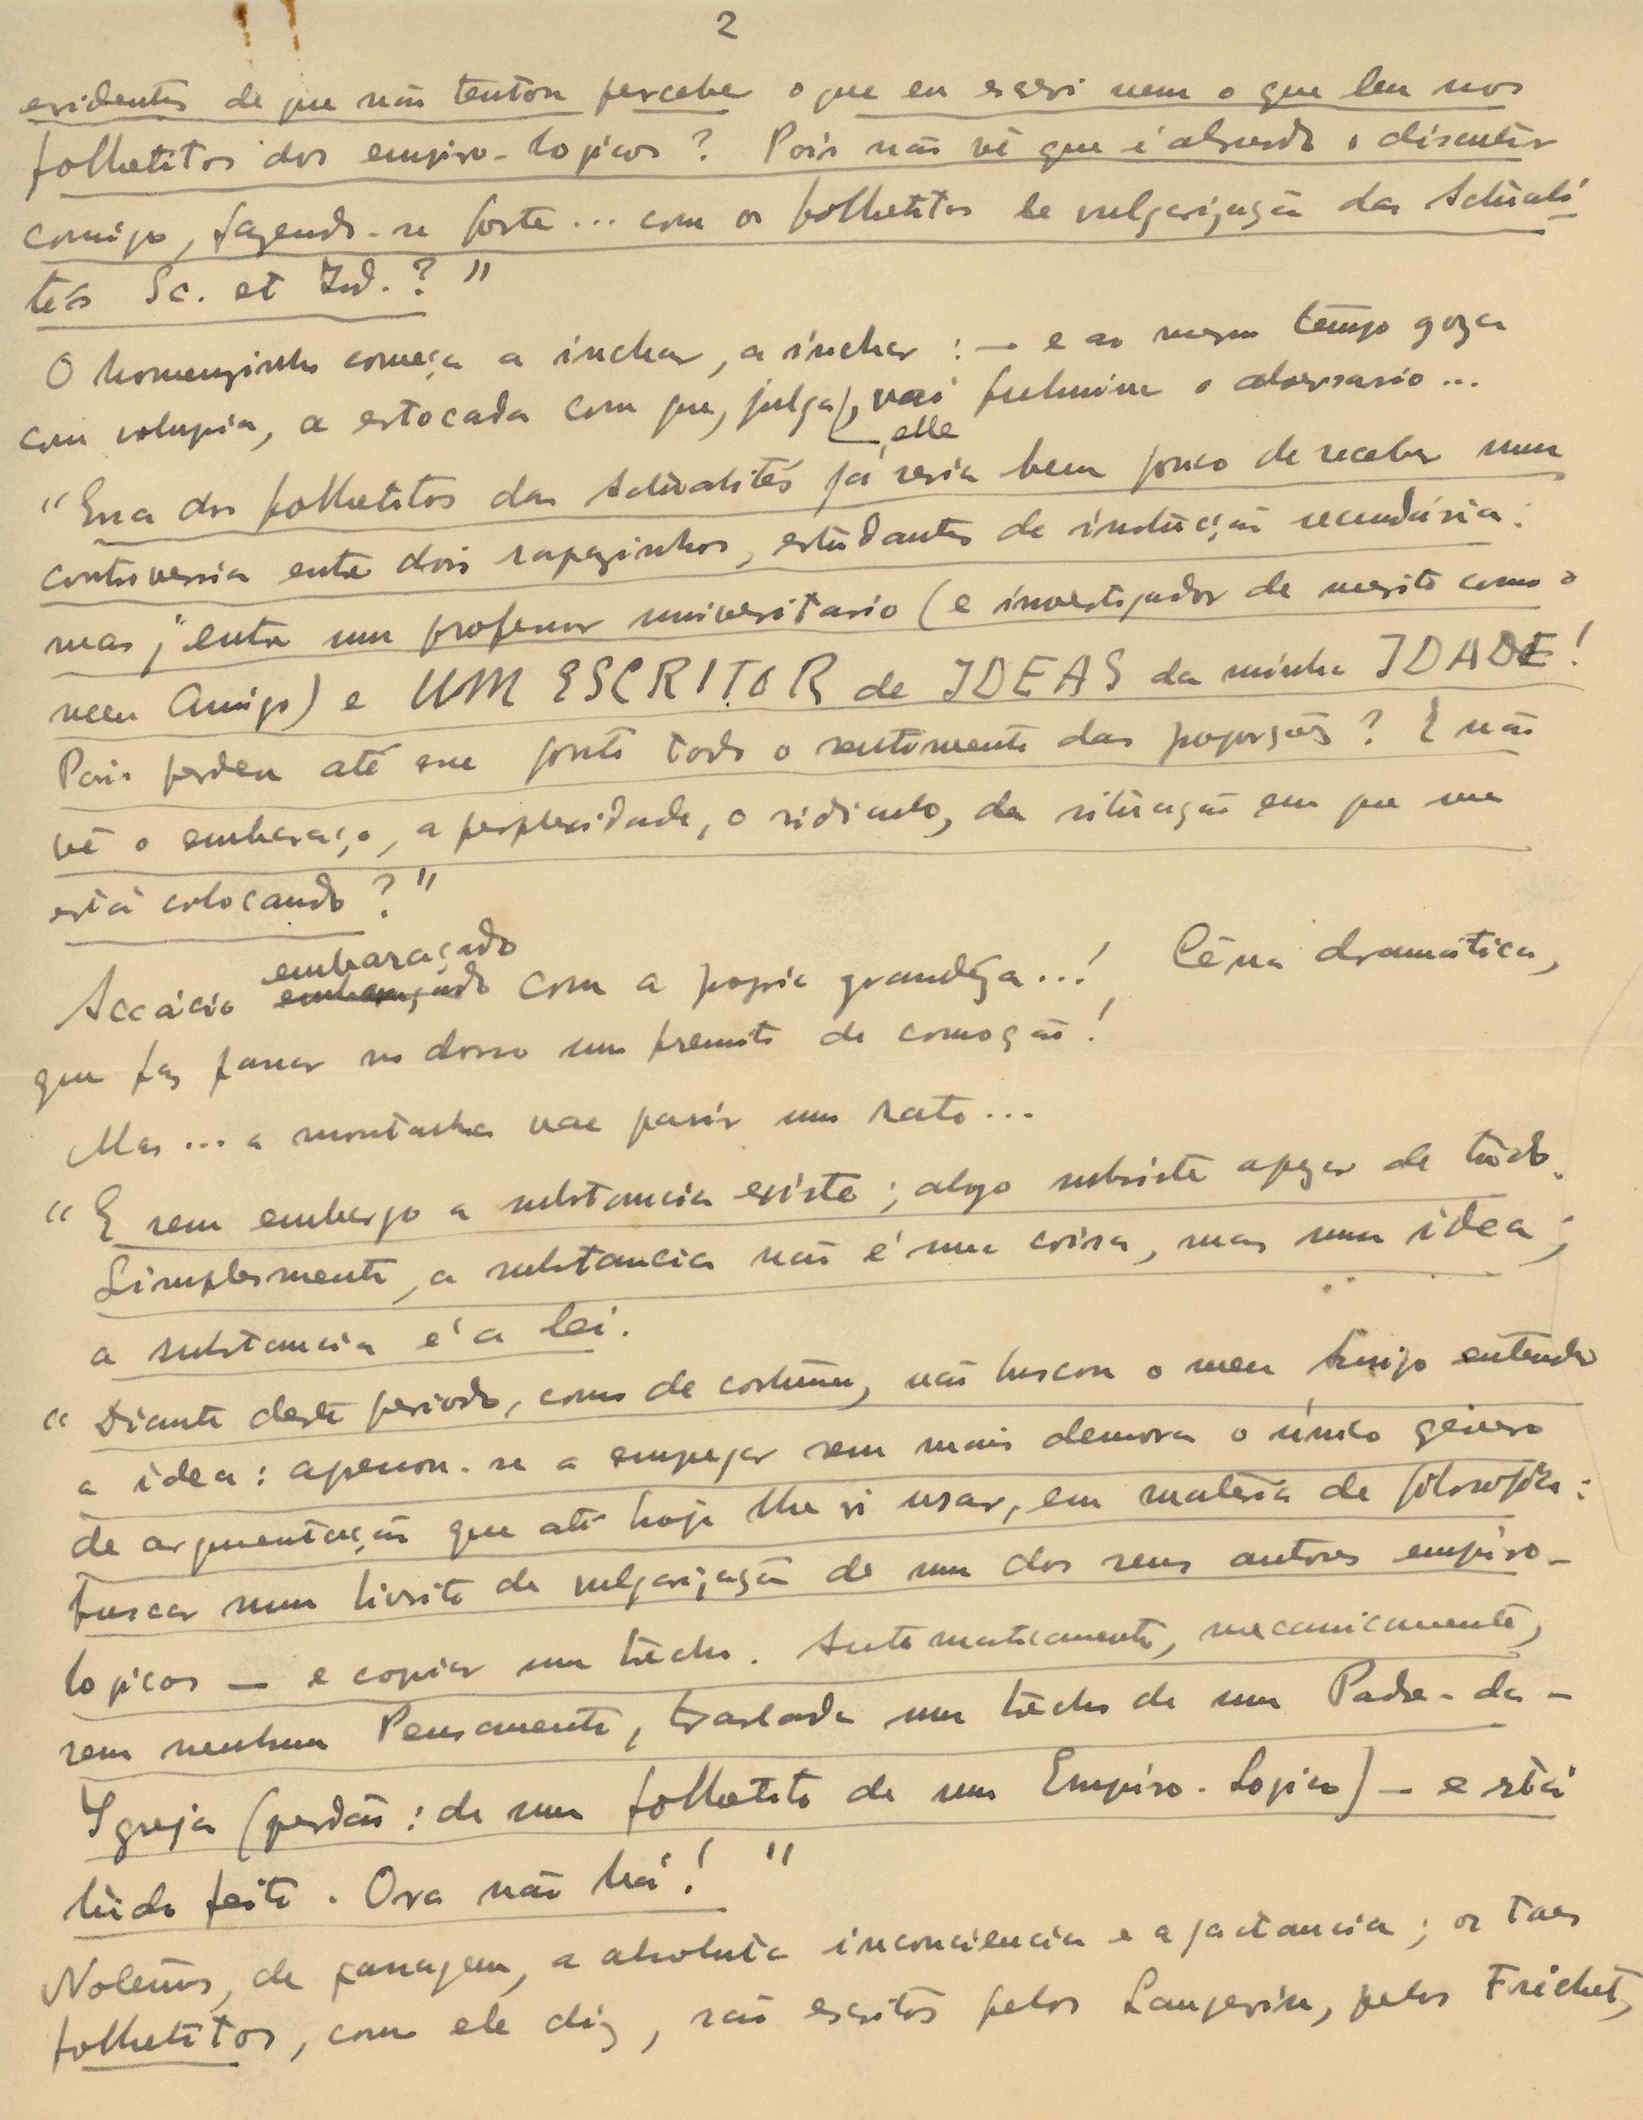 2
evidentes de que não tentou perceber o que eu escrevi nem o que leu nos
folhetitos dos empiro-logicos? Pois não vê que é absurdo o discutir
comigo, fazendo-se forte... com os folhetitos de vulgarização das Actuali-
tés Sc. et Ind.?"
O homenzinho começa a inchar, a inchar: — e ao mesmo tempo goza
com volupia, a estocada com que, julga, vai fulminar o adversario...
elle
"Essa dos folhetitos das Actualités já seria bem pouco de receber numa
controversia entre dois rapazinhos, estudantes de instrucção secundária:
mas, entre um professor universitario (e investigador de merito como o
meu Amigo) e UM ESCRITOR de IDEAS da minha IDADE!
Pois perdeu até esse ponto todo o sentimento das proporções? E não
vê o embaraço, a perplexidade, o ridiculo, da situação em que me
está colocando?"
embaraçado
Accácio embaraçado com a propria grandeza...! Cêna dramática,
que faz passar no dorso um fremito de comoção!
Mas... a montanha vae parir um rato...
"E sem embargo a substancia existe; algo subsiste apezar de tudo.
Simplesmente, a substancia não é uma coisa, mas uma idea;
a substancia é a lei.
"Diante deste periodo, como de costume, não buscou o meu Amigo entender
a idea: apenou-se a empregar sem mais demora o único género
de argumentação que até hoje lhe vi usar, em matéria de filosofia:
buscar num livrito de vulgarização de um dos seus autores empiro-
logicos — e copiar um trecho. Automaticamente, mecanicamente,
sem nenhum Pensamento, traslada um trecho de um Padre-da-
Igreja (perdão: de um folhetito de um Empiro-Logico) — e está
tudo feito. Ora não há!"
Notemos, de passagem, a absoluta inconciencia e a jactancia; os taes
folhetitos, como ele diz, são escritos pelos Langevin, pelos Fréchet,